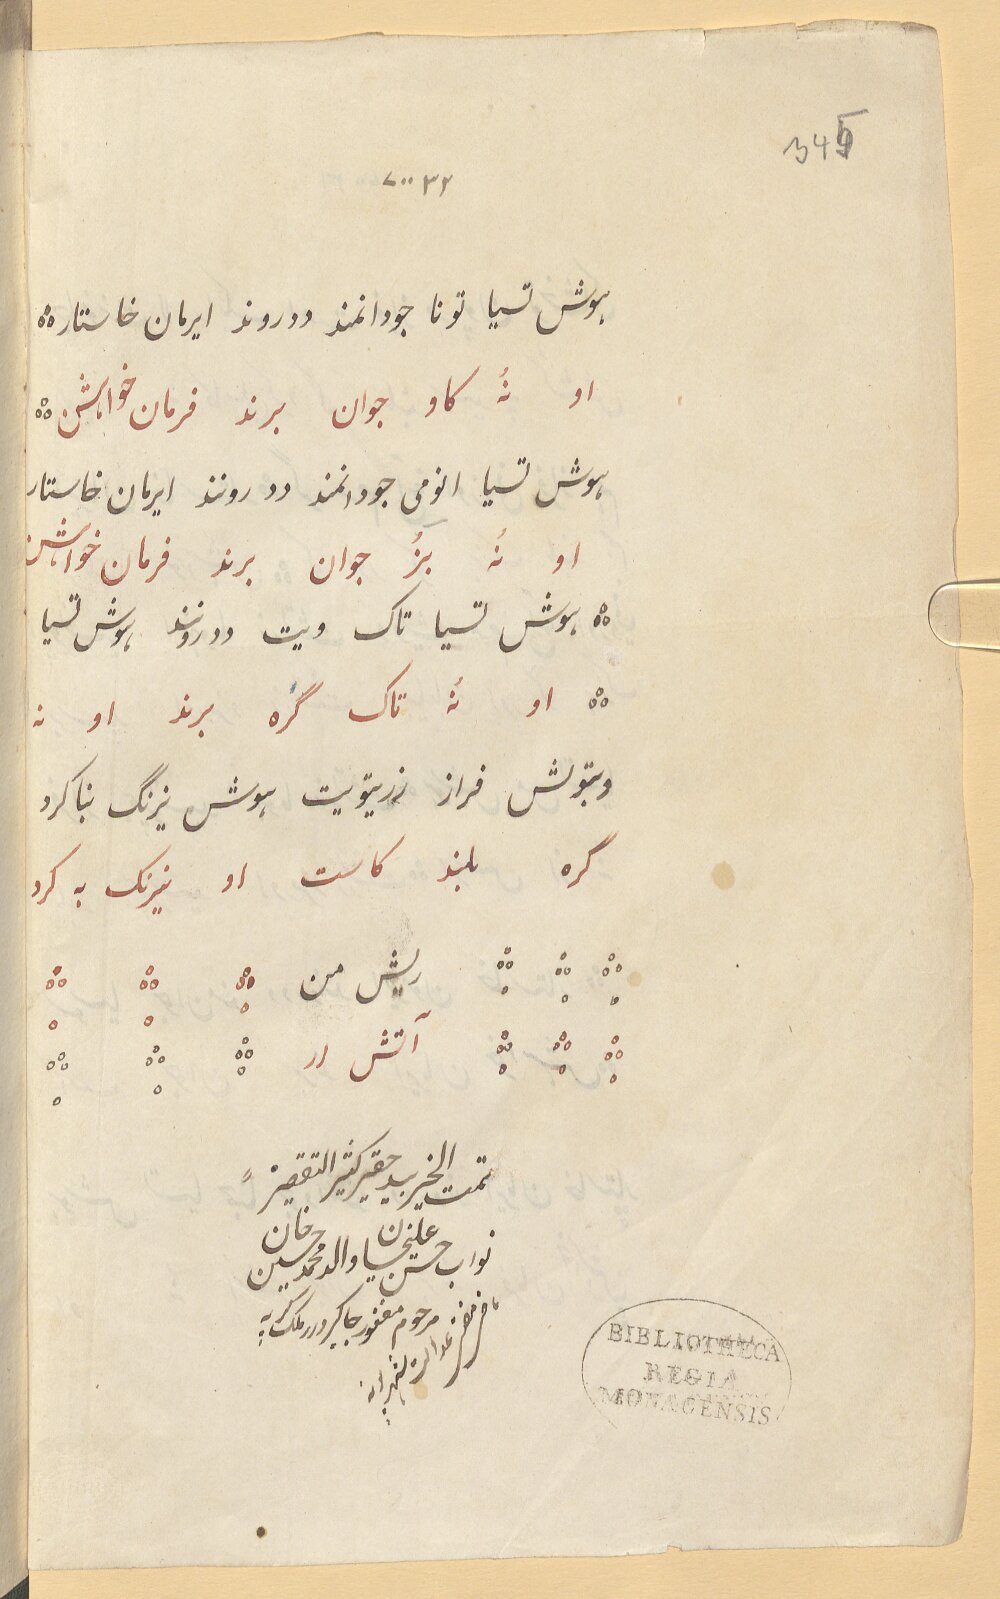 345
۷۰۰ ۳۲
ہوش تسیا تونا جودانمند ددروند ایرمان خاستار
او نُه کاو جوان برند فرمان خواہش
ہوش تسیا انومی جودانمند دد روند ایرمان خاستار
او نُه بزُ جوان برند فرمان خواہش
ہوش تسیا تاک ویت ددروند ہوش تسیا
او نُه تاک گره برند او نه
فراز زریتویت ہوش نیرنگ بنا کرد
گره بلند کاست او نیرنک به کرد
ریش من
آتش ار
تمت الخیر بید حقیر کثیر التقصیر
نواب حسن علیخان والد محمد حسین خان
مرحوم مغفور جاگیردار
BIBLIOTHECA
REGIA
MONACENSIS